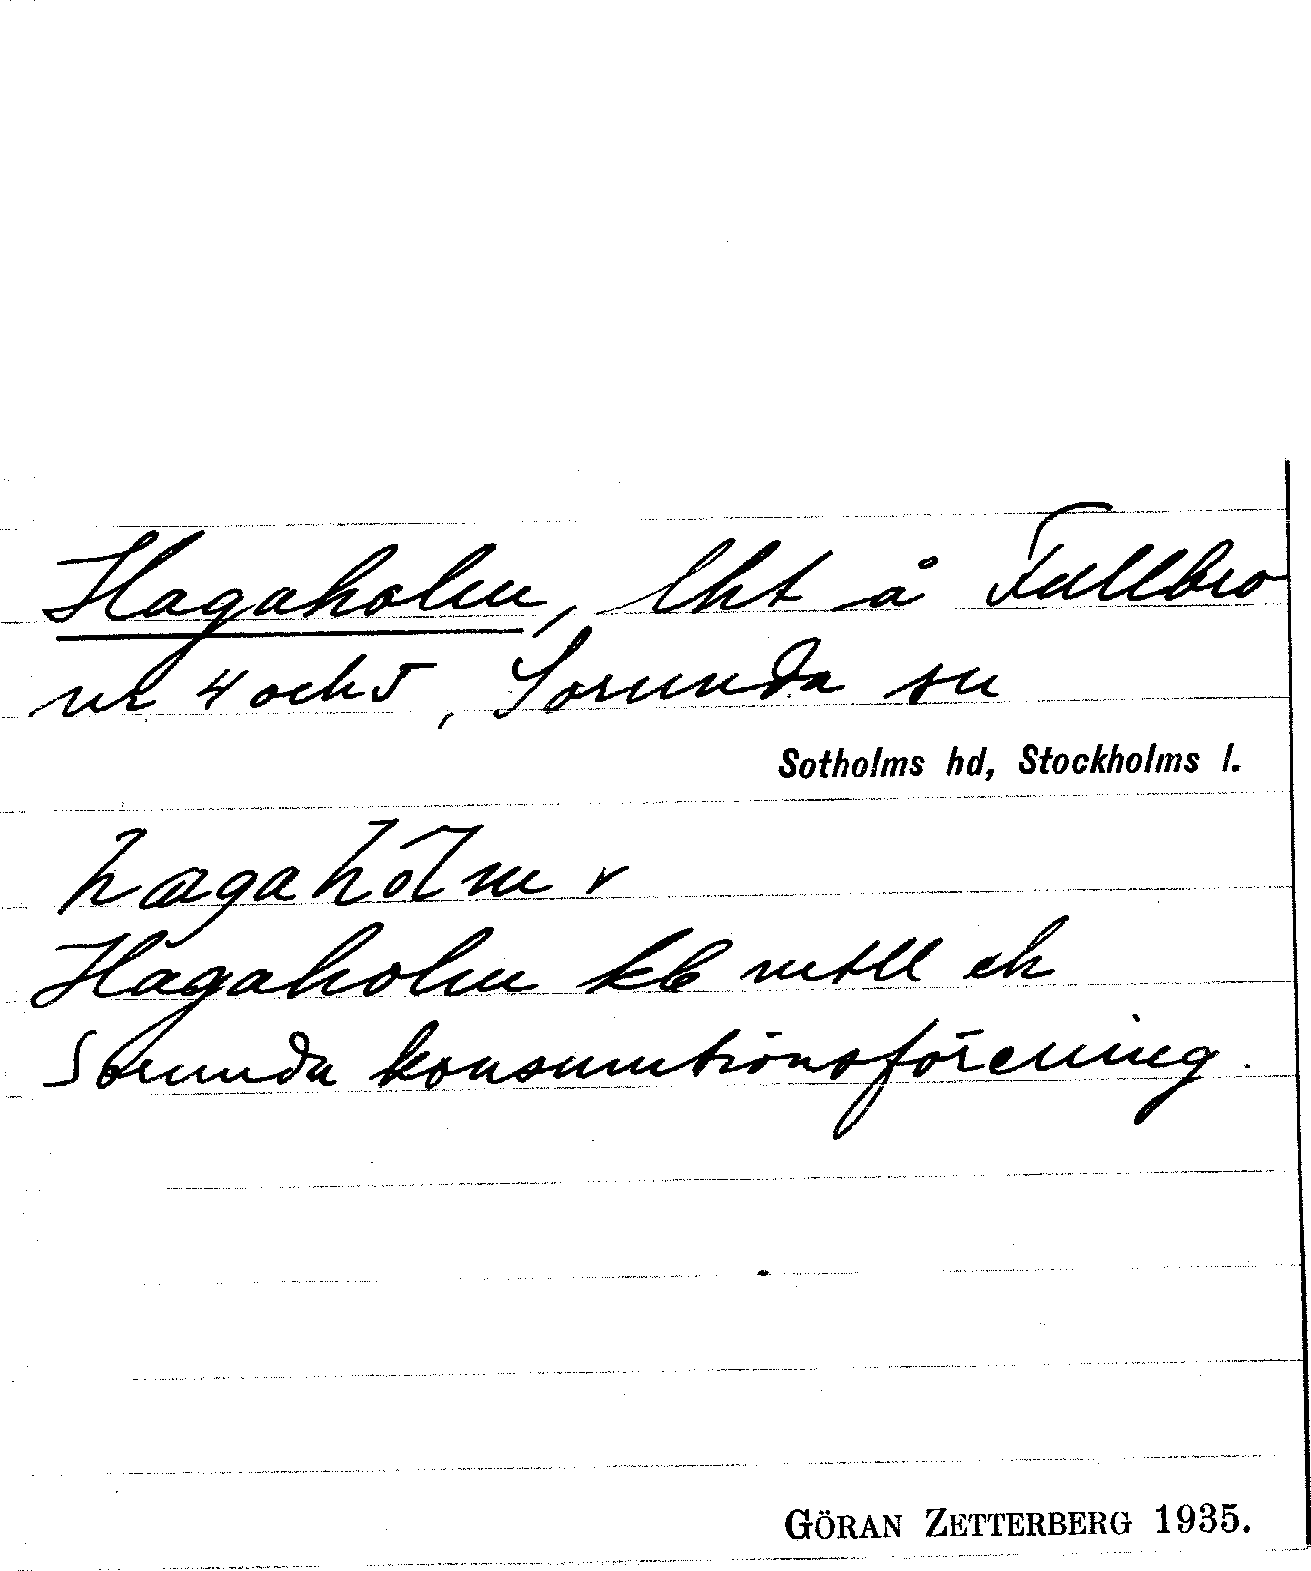 Hagaholm, lht å Fullbro
nr 4 och 5, Sorunda sn
Sotholms hd, Stockholms l.
hagahòlm v
Hagaholm kb mtll ek
Sorunda konsumtionsförening.
GÖRAN ZETTERBERG 1935.